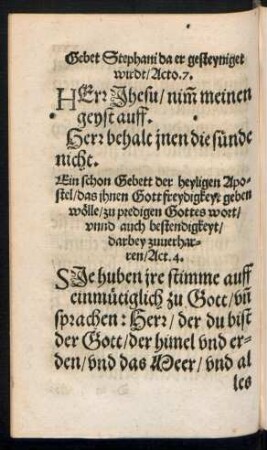 Gebet Stephani da er gesteyniget
wirdt/Acto.7.
HErr Jhesu/ nim̃ meinen
geyst auff.
Herr behalt jnen die sünde
nicht.
Ein schon Gebett der heyligen Apo-
stel/das ihnen Gott freydigkeyt geben
wölle/zu predigen Gottes wort/
vnnd auch bestendigkeyt/
darbey zuuerhar-
ren/Act.4.
SJe huben jre stimme auff
einmütiglich zu Gott/vñ
sprachen: Herr/der du bist
der Gott/der himel vnd er-
den/vnd das Meer/vnd al
les